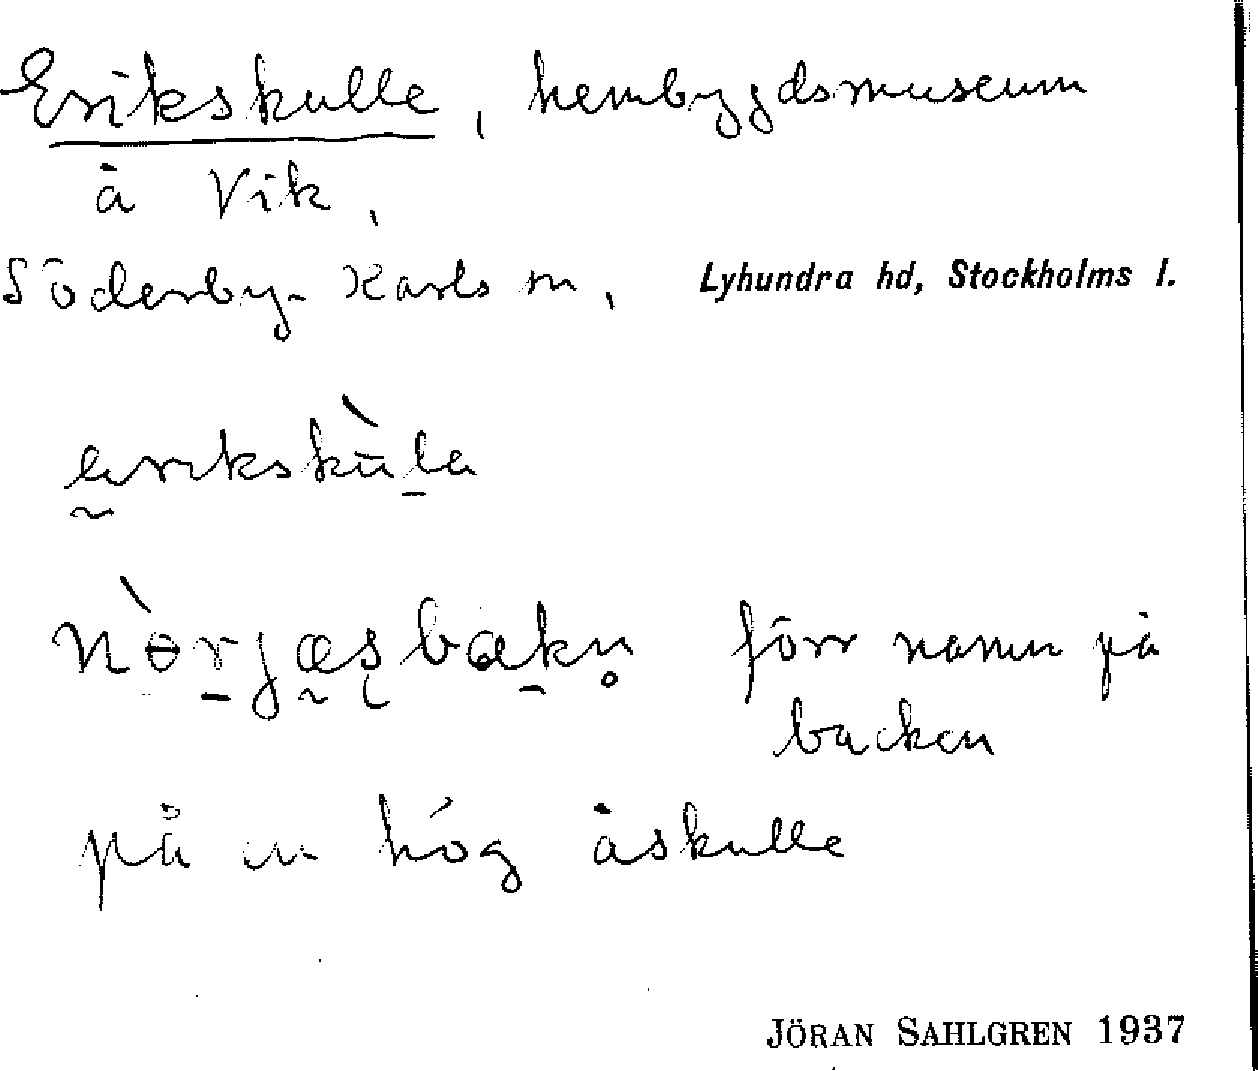 Erikskulle, hembygdsmuseum
å Vik,
Söderby-Karls sn, Lyhundra hd, Stockholms l.
förr namn på
backen
på en hög åskulle
JÖRAN SAHLGREN 1937